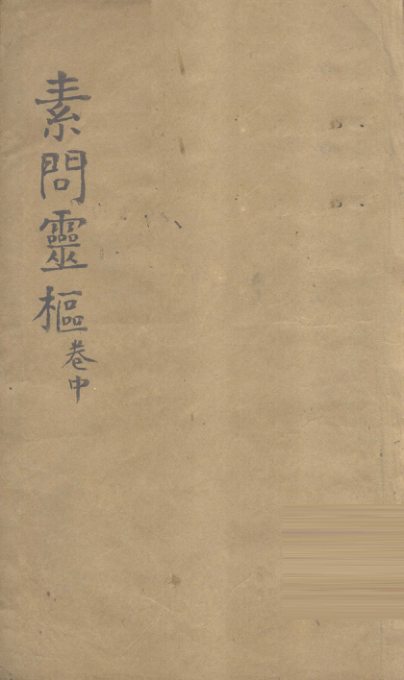 素問靈樞卷中